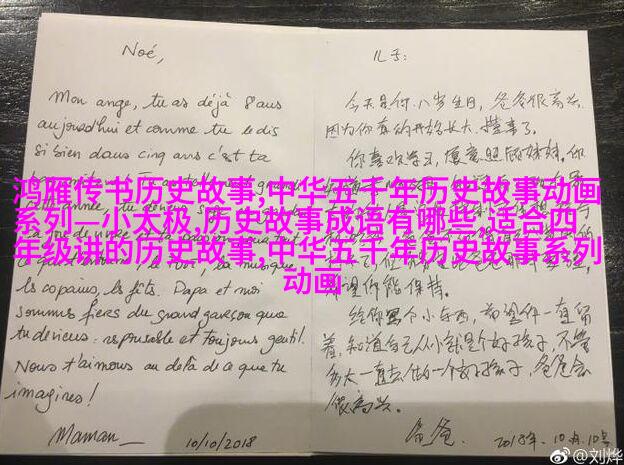 Noé,
Mon ange, tu as déjà 8 ans
aujourd'hui et comme tu le dis
si bien dans cinq ans c'est ta
鸿雁传书历史故事,中华五千年历史故事动画
系列一小太极,历史故事成语有哪些,适合四
年级讲的历史故事,中华五千年历史故事系列
动画
les copains, les fêtes. Papa et moi
sommes fiers du grand garçon que
tu deviens: responsable et toujours gentil.
Nous t'aimons au delà de ce que tu
imagines!
Maman_
10/10/2018
儿子:
今天是你八岁生日,爸爸很高兴
因为你真的开始长大,懂事了。
你喜欢学习,愿意照顾妹妹。你
希望你能保持。
给你写个小东西,希望你一直留
着,知道自己从小就是个好孩子,不管
多大一直去做一个好孩子,爸爸会
很高兴。
爸爸.
2018年.10月.10号
@刘烨